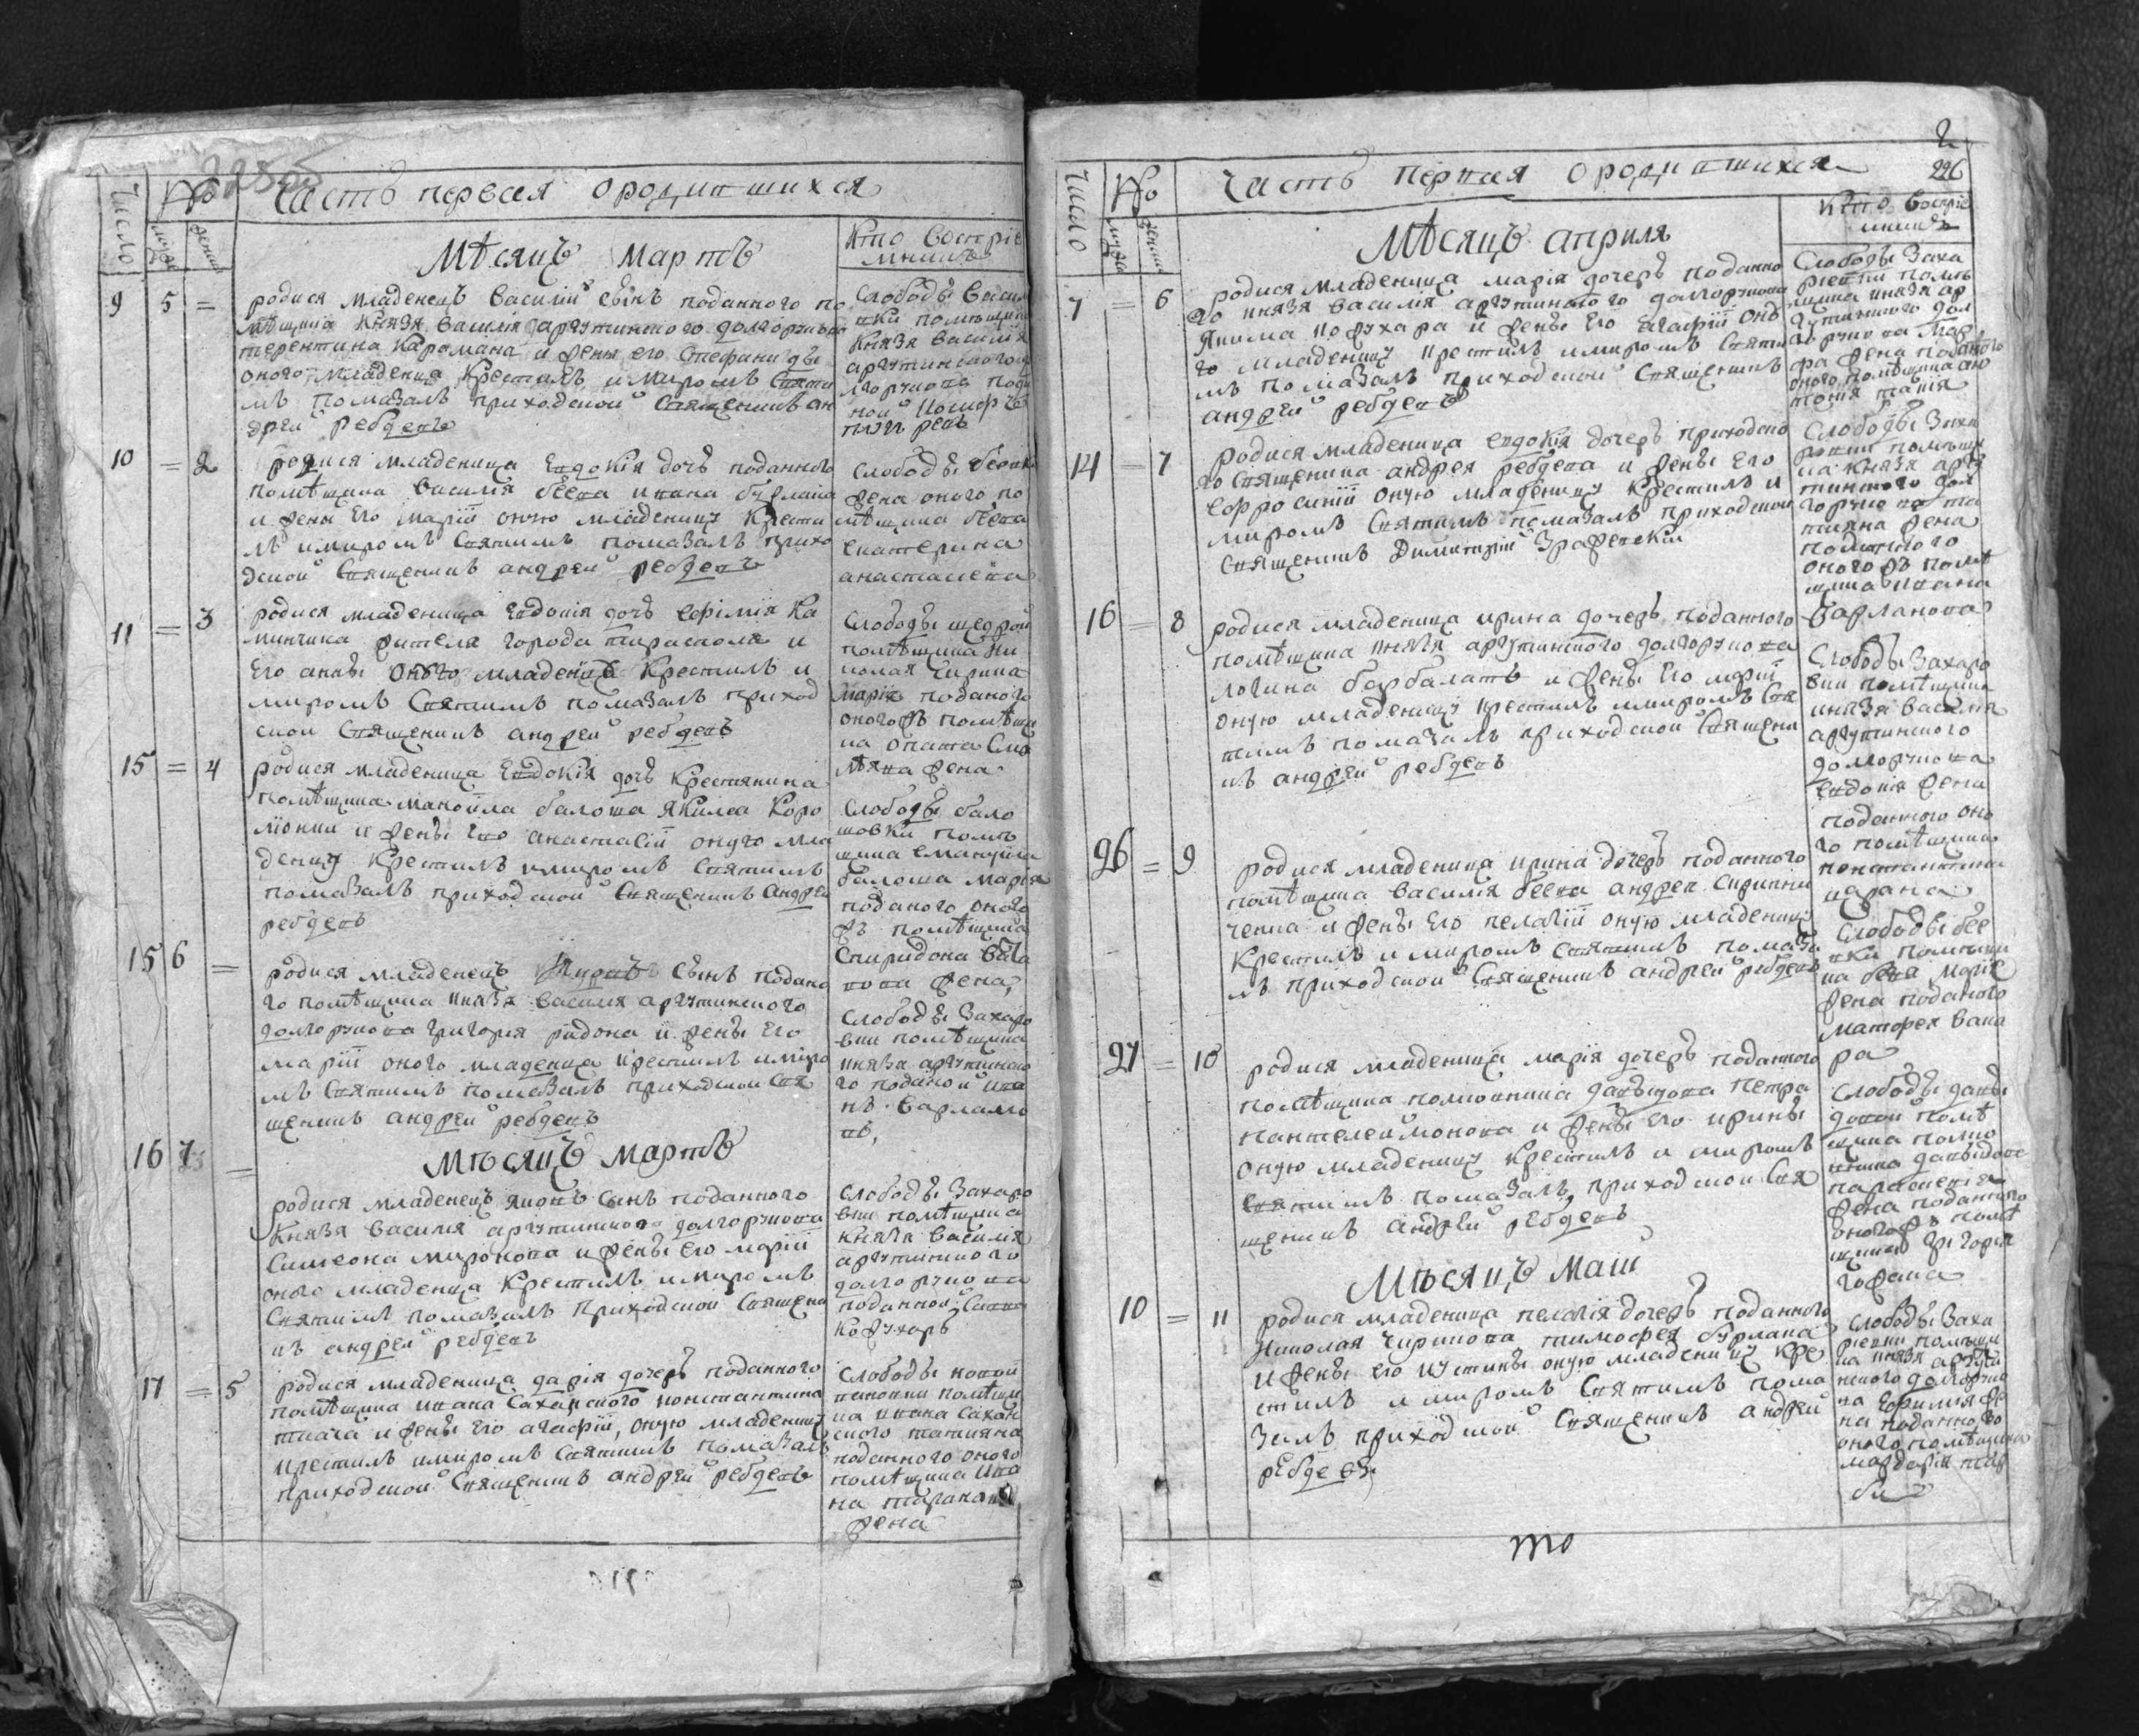 Часть первая ородившихся
число
No
мужс
женск
Кто Воспріе
мникъ
Мѣсяцъ Мартъ
9 5 =
родися Младенецъ Василій сынъ поданного по
мѣщика Князя Василія аргутинского долгорукова
терентина Карамана и жены его Стефаниды
оного Младенца Крестилъ и Миромъ Святи
мъ помазалъ приходской Священикъ ан
дрей ребдевъ
Слободы Васил
вки помѣщика
Князя Василія
аргутинского до
лгорукова под
ной Иосифъ
10 = 2
родися младеница Евдокія дочъ поданного
помѣщика Василія беева ивана бурлака
и жены Его Маріи оную младеницу Крести
лъ имиромъ Святимъ помазалъ прихо
дской Священикъ андрей ребдевъ
Слободы беевки
жена оного по
мѣщика беева
Екатерина
анастасіева
11 = 3
родися младеница Евдокія дочъ Ефімія Ка
минчика жителя города тирасполя и
Его анны оного младенца Крестилъ и
миромъ Святимъ помазалъ приход
ской Священикъ андрей ребдевъ
Слободы щедрой
помѣщика Ни
колая Чирика
Марія поданого
оногожъ помѣщи
ка
жена
15 = 4
родися младеница Евдокія дочъ Крестянина
помѣщика Манойла балоша Якима Коро
люнки и жены Его анастасіи оную мла
деницу Крестилъ имиромъ Святимъ
помазалъ приходской Священикъ андрей
ребдевъ
Слободы бало
шовки помѣ
щика Емануйла
балоша Марія
поданого оного
жъ помѣщика
Спиридона
жена,
15 6 =
родися младенецъ сынъ подано
го помѣщика князя василія аргутинского
долгорукова григорія ридона и жены Его
маріи оного младенца крестилъ имиро
мъ Святимъ помазалъ приходской Свя
щеникъ андрей ребдевъ
Слободы Захаро
вки помѣщика
князя аргутинско
го поданой ива
нъ варламо
въ,
Мѣсяцъ мартъ
16 7 =
родися младенецъ яковъ сынъ поданного
Князя василія аргутинского долгорукова
Симеона Миронова и жены Его маріи
оного младенца Крестилъ имиромъ
Святимъ помазалъ приходской Священи
къ андрей ребдевъ
Слободы Захаро
вки помѣщика
князя василія
аргутинского
долгорукова
поданной Савва
Кожухарь
17 = 5
родися младеница дарія дочеръ поданного
помѣщика ивана Саханского константина
ткача и жены Его агафіи, оную младеницу
крестилъ имиромъ Святимъ помазалъ
приходской Священикъ андрей ребдевъ
Слободы новой
ивановки помѣщи
ка ивана сахан
ского татияна
поданного оного
помѣщика ива
на тарана
жена
2
226
Часть первая ородившихся
число
No
мужс
женск
Кто Воспріе
мникъ
Мѣсяцъ априля
7 = 6
родися младеница марія дочеръ поданно
го князя василія аргутинского долгорукова
якима кожухара и жены Его агафіи оно
го младеницу крестилъ имиромъ Святи
мъ помазалъ приходской Священикъ
андрей ребдевъ
Слободы Заха
ріевки помѣ
щика князя ар
гутинского дол
горукова мар
фа жена поданого
оного помѣщика ан
тонія
14 = 7
родися младеница евдокія дочеръ приходско
го Священика андрея ребдева и жены Его
Ефросиніи оную младеницу Крестилъ и
миромъ Святимъ помазалъ приходской
Священикъ Димитрій Зражевскій
Слободы Заха
ровки помѣщи
ка князя аргу
тинского дол
горукова та
тияна жена
поданного
оногожъ помѣ
щика ивана
Варланова
16 = 8
родися младеница ирина дочеръ поданного
помѣщика князя аргутинского долгорукова
логина барбалатъ и жены Его маріи
оную младеницу крестилъ имиромъ Свя
тимъ помазалъ приходской Священи
къ андрей ребдевъ
Слободы Захаро
вки помѣщика
князя василія
аргутинского
долгорукова
Евдокія жена
поданного оно
го помѣщика
константина
царана
26 = 9
родися младеница ирина дочеръ поданного
помѣщика василія беева андрея Скрипни
ченка и жены Его пелагіи оную младеницу
Крестилъ и миромъ Святимъ помаза
лъ приходской Священикъ андрей ребдевъ
Слободы бее
вки помѣщи
ка беева Марія
жена поданого
матфея вака
ра
27 = 10
родися младеница марія дочеръ поданного
помѣщика полковника давыдова петра
пантелеймонова и жены Его ирины
оную младеницу Крестилъ и миромъ
Святимъ помазалъ приходской Свя
щеникъ андрей ребдевъ
Слободы давы
довой помѣ
щика полко
вника давыдова
параскевія
жена поданного
оногожъ помѣ
щика григорія
гофана
Мѣсяцъ маій
10 = 11
родися младеница пелагія дочеръ поданного
Николая Чирикова тимофея бурлака
и жены Его иустины оную младеницу кре
стилъ и миромъ Святимъ пома
залъ приходской Священикъ андрей
ребдевъ
Слободы Заха
ріевки помѣщи
ка князя аргути
нского долгоруко
ва Ефимія же
на поданного
оного помѣщика
мардарія